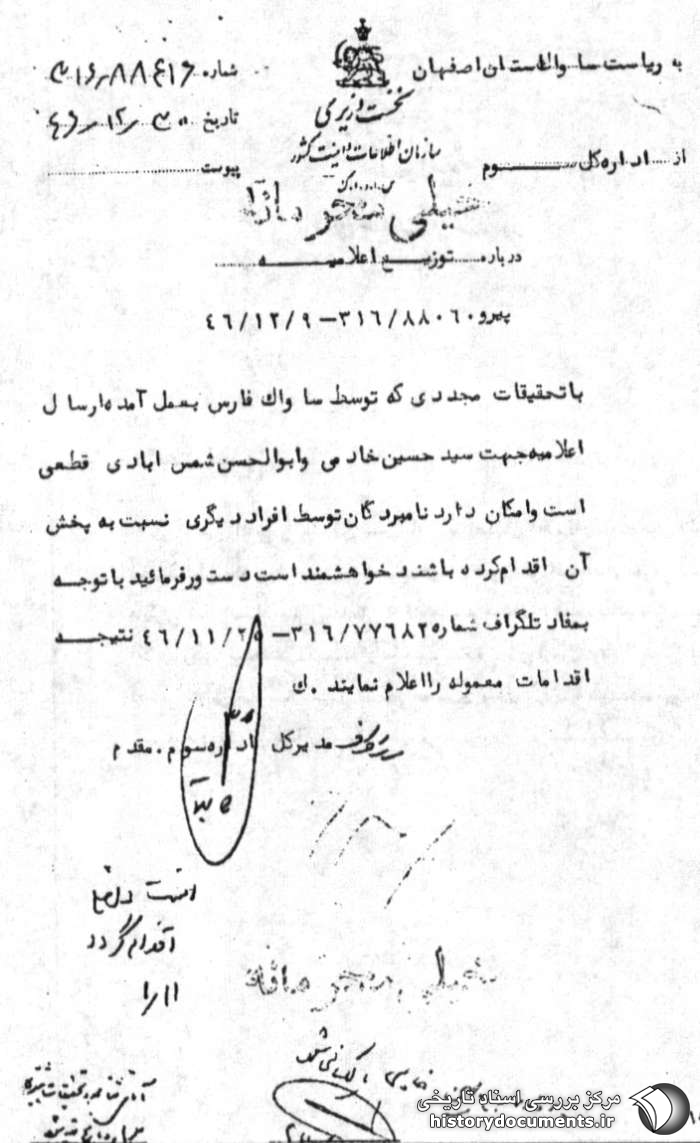 به ریاست ساواک استان اصفهان
نخست وزیری
سازمان اطلاعات و امنیت کشور
س.ا.و.ا.ک
شماره ۳۱۶/۸۸۴۱۶
تاریخ ۳۰/۱۲/۴۶
پیوست
از اداره کل سوم
خیلی محرمانه
درباره توزیع اعلامیه
پیرو ۳۱۶/۸۸۰۶۰ - ۴۶/۱۲/۹
با تحقیقات مجددی که توسط ساواک فارس بعمل آمده ارسال
اعلامیه جهت سید حسین خادمی و ابوالحسن شمس ابادی قطعی
است و امکان دارد نامبردگان توسط افراد دیگری نسبت به پخش
آن اقدام کرده باشند خواهشمند است دستور فرمائید با توجه
بمفاد تلگراف شماره ۳۱۶/۷۷۶۸۲ - ۴۶/۱۱/۲۵ نتیجه
اقدامات معموله را اعلام نمایند . ک
مدیرکل اداره سوم . مقدم
اقدام گردد
خیلی محرمانه
مرکز بررسی اسناد تاریخی
historydocuments.ir